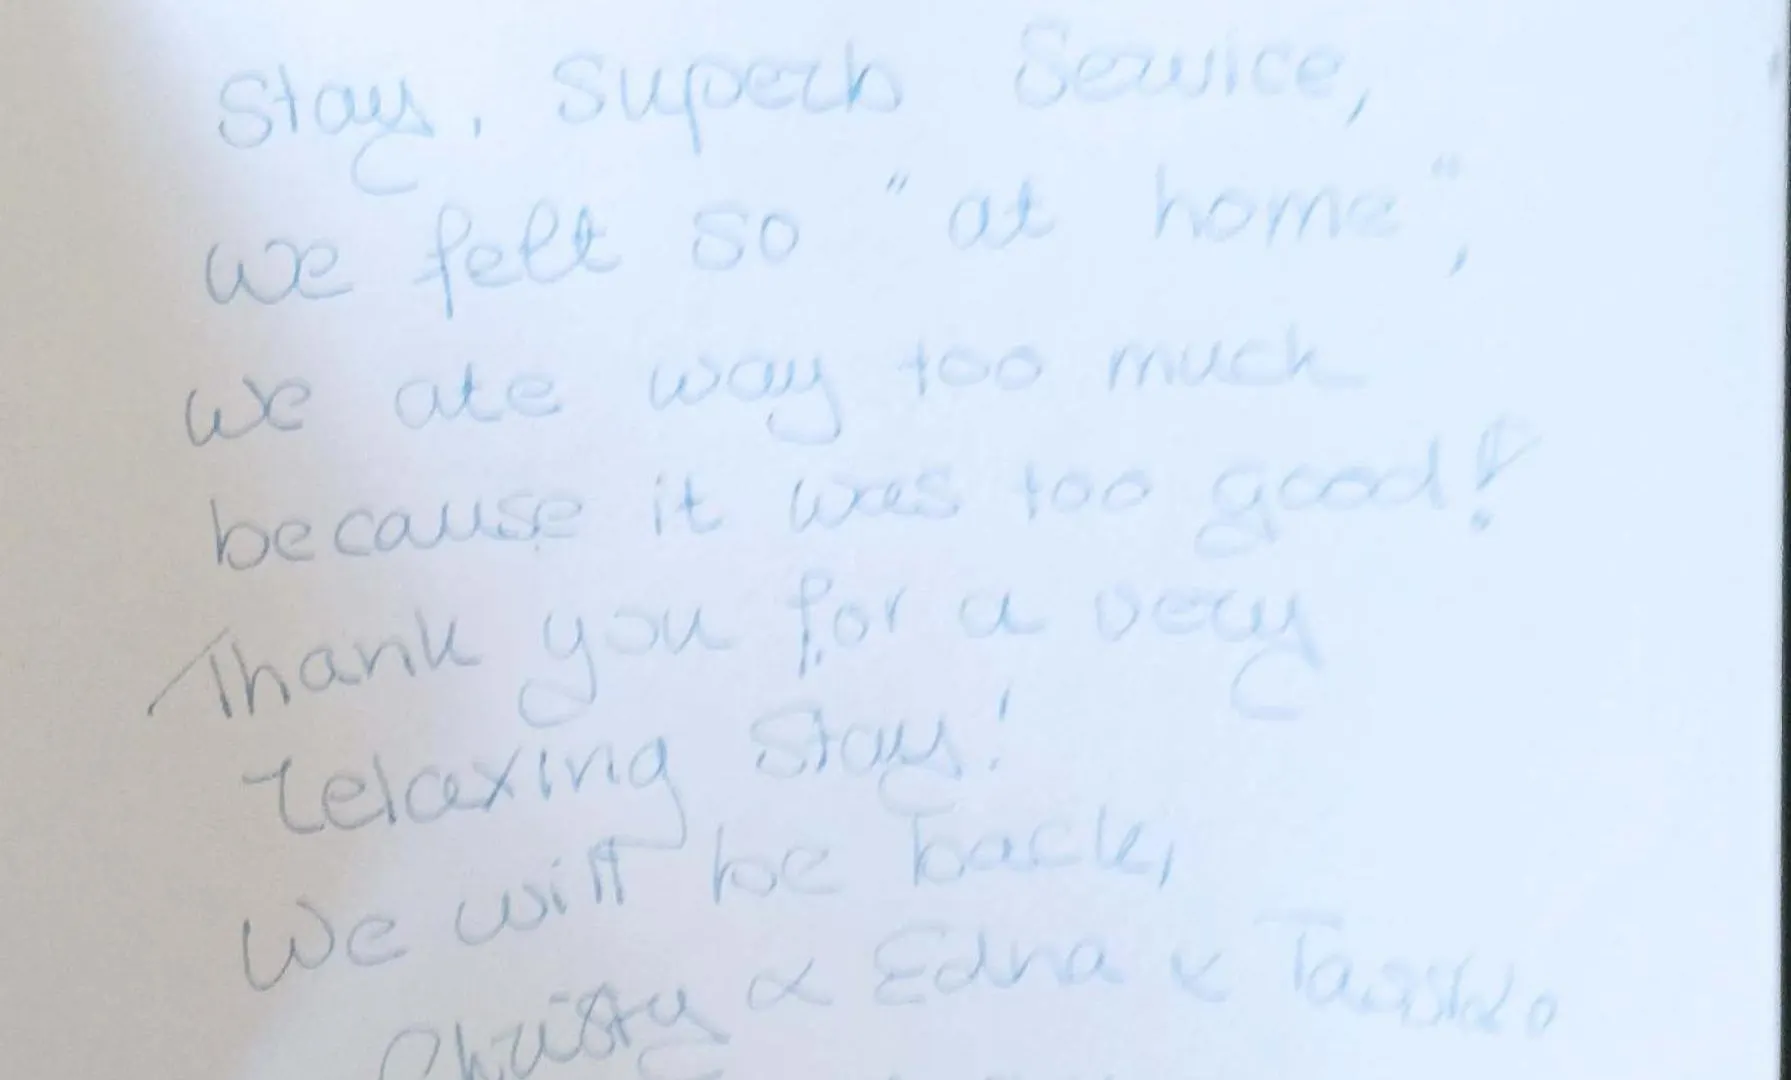 Stay, Superb Service,
we felt so "at home",
we ate way too much
because it was too good!
Thank you for a very
relaxing stay!
We will be back,
Christy & Edna &